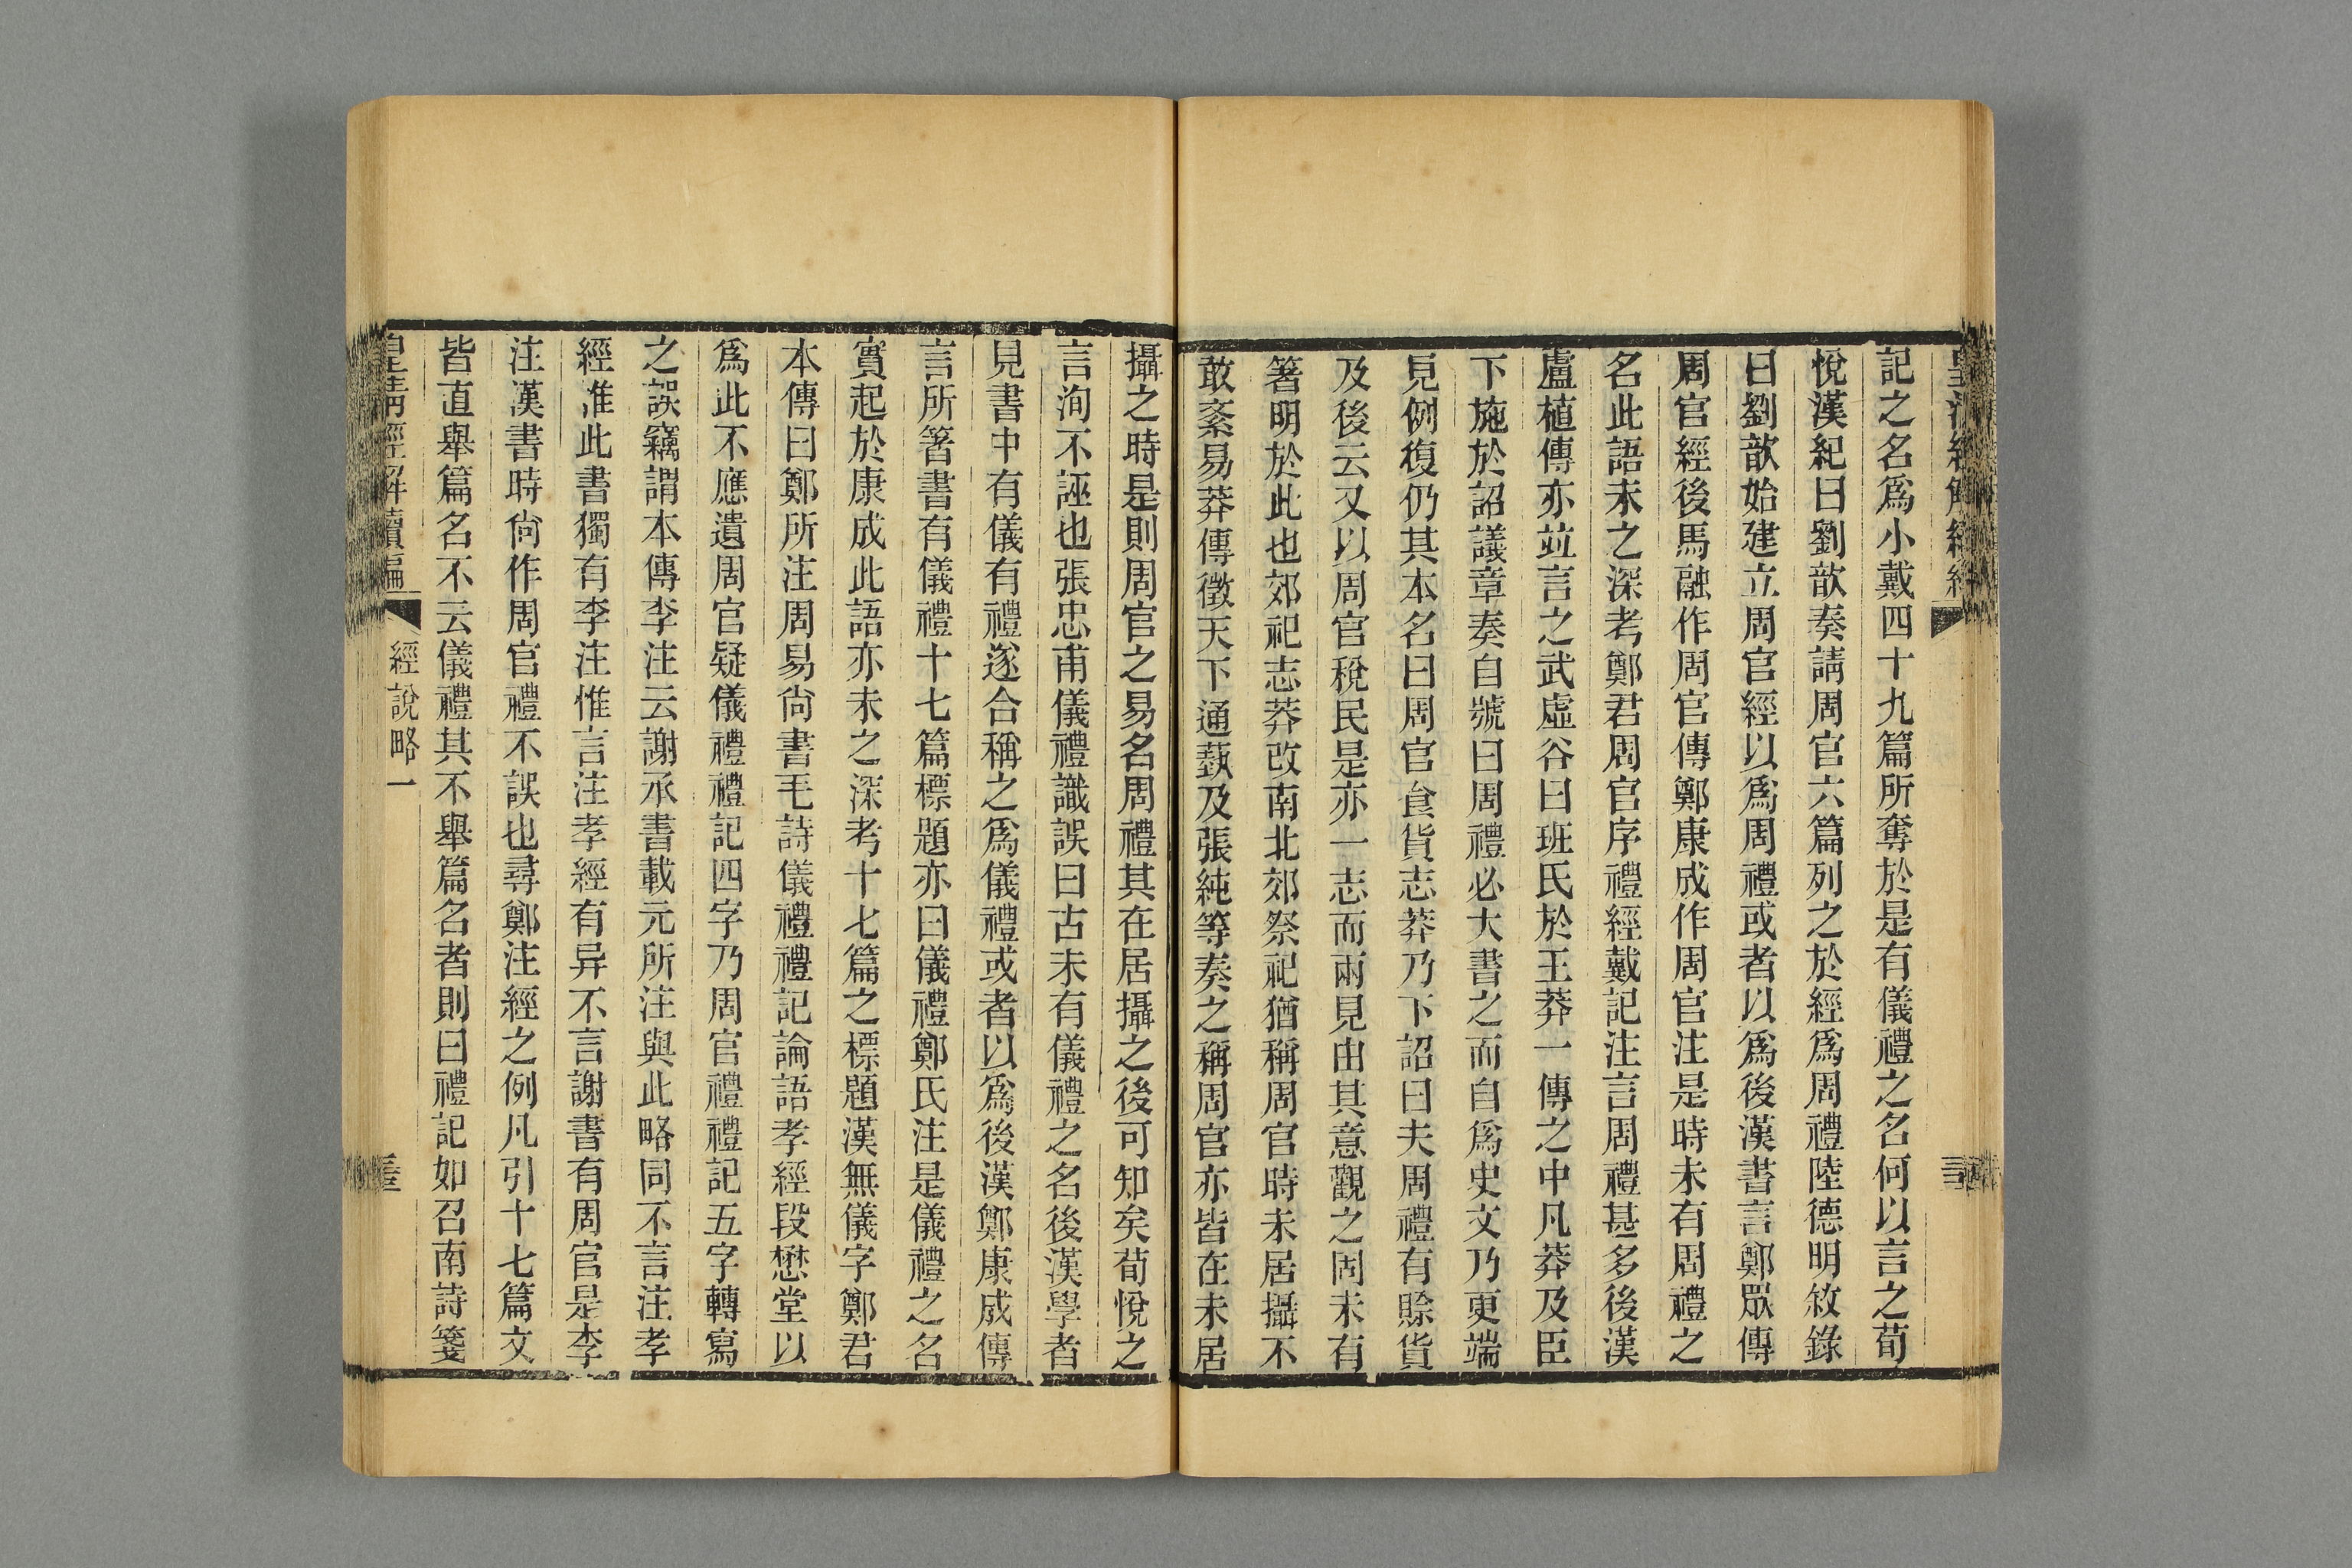 記之名爲小戴四十九篇所奪於是有儀禮之名何以言之荀
悅漢紀曰劉歆奏請周官六篇列之於經爲周禮陸德明敘錄
曰劉歆始建立周官經以爲周禮或者以爲後漢書言鄭眾傳
周官經後馬融作周官傳鄭康成作周官注是時未有周禮之
名此語未之深考鄭君周官序禮經戴記注言周禮甚多後漢
盧植傳亦竝言之武虛谷曰班氏於王莽一傳之中凡莽及臣
下施於詔議章奏自號曰周禮必大書之而自爲史文乃更端
見例復仍其本名曰周官食貨志莽乃下詔曰夫周禮有賒貨
及後云又以周官稅民是亦一志而兩見由其意觀之固未有
箸明於此也郊祀志莽改南北郊祭祀猶稱周官時未居攝不
敢紊易莽傳徵天下通藝及張純等奏之稱周官亦皆在未居
攝之時是則周官之易名周禮其在居攝之後可知矣荀悅之
言洵不誣也張忠甫儀禮識誤曰古未有儀禮之名後漢學者
見書中有儀有禮遂合稱之爲儀禮或者以爲後漢鄭康成傳
言所箸書有儀禮十七篇標題亦曰儀禮鄭氏注是儀禮之名
實起於康成此語亦未之深考十七篇之標題漢無儀字鄭君
本傳曰鄭所注周易尙書毛詩儀禮禮記論語孝經段懋堂以
爲此不應遺周官疑儀禮禮記四字乃周官禮禮記五字轉寫
之誤竊謂本傳李注云謝承書載元所注與此略同不言注孝
經准此書獨有李注惟言注孝經有异不言謝書有周官是李
注漢書時尙作周官禮不誤也尋鄭注經之例凡引十七篇文
皆直舉篇名不云儀禮其不舉篇名者則曰禮記如召南詩箋
皇清經解續編
經說略一